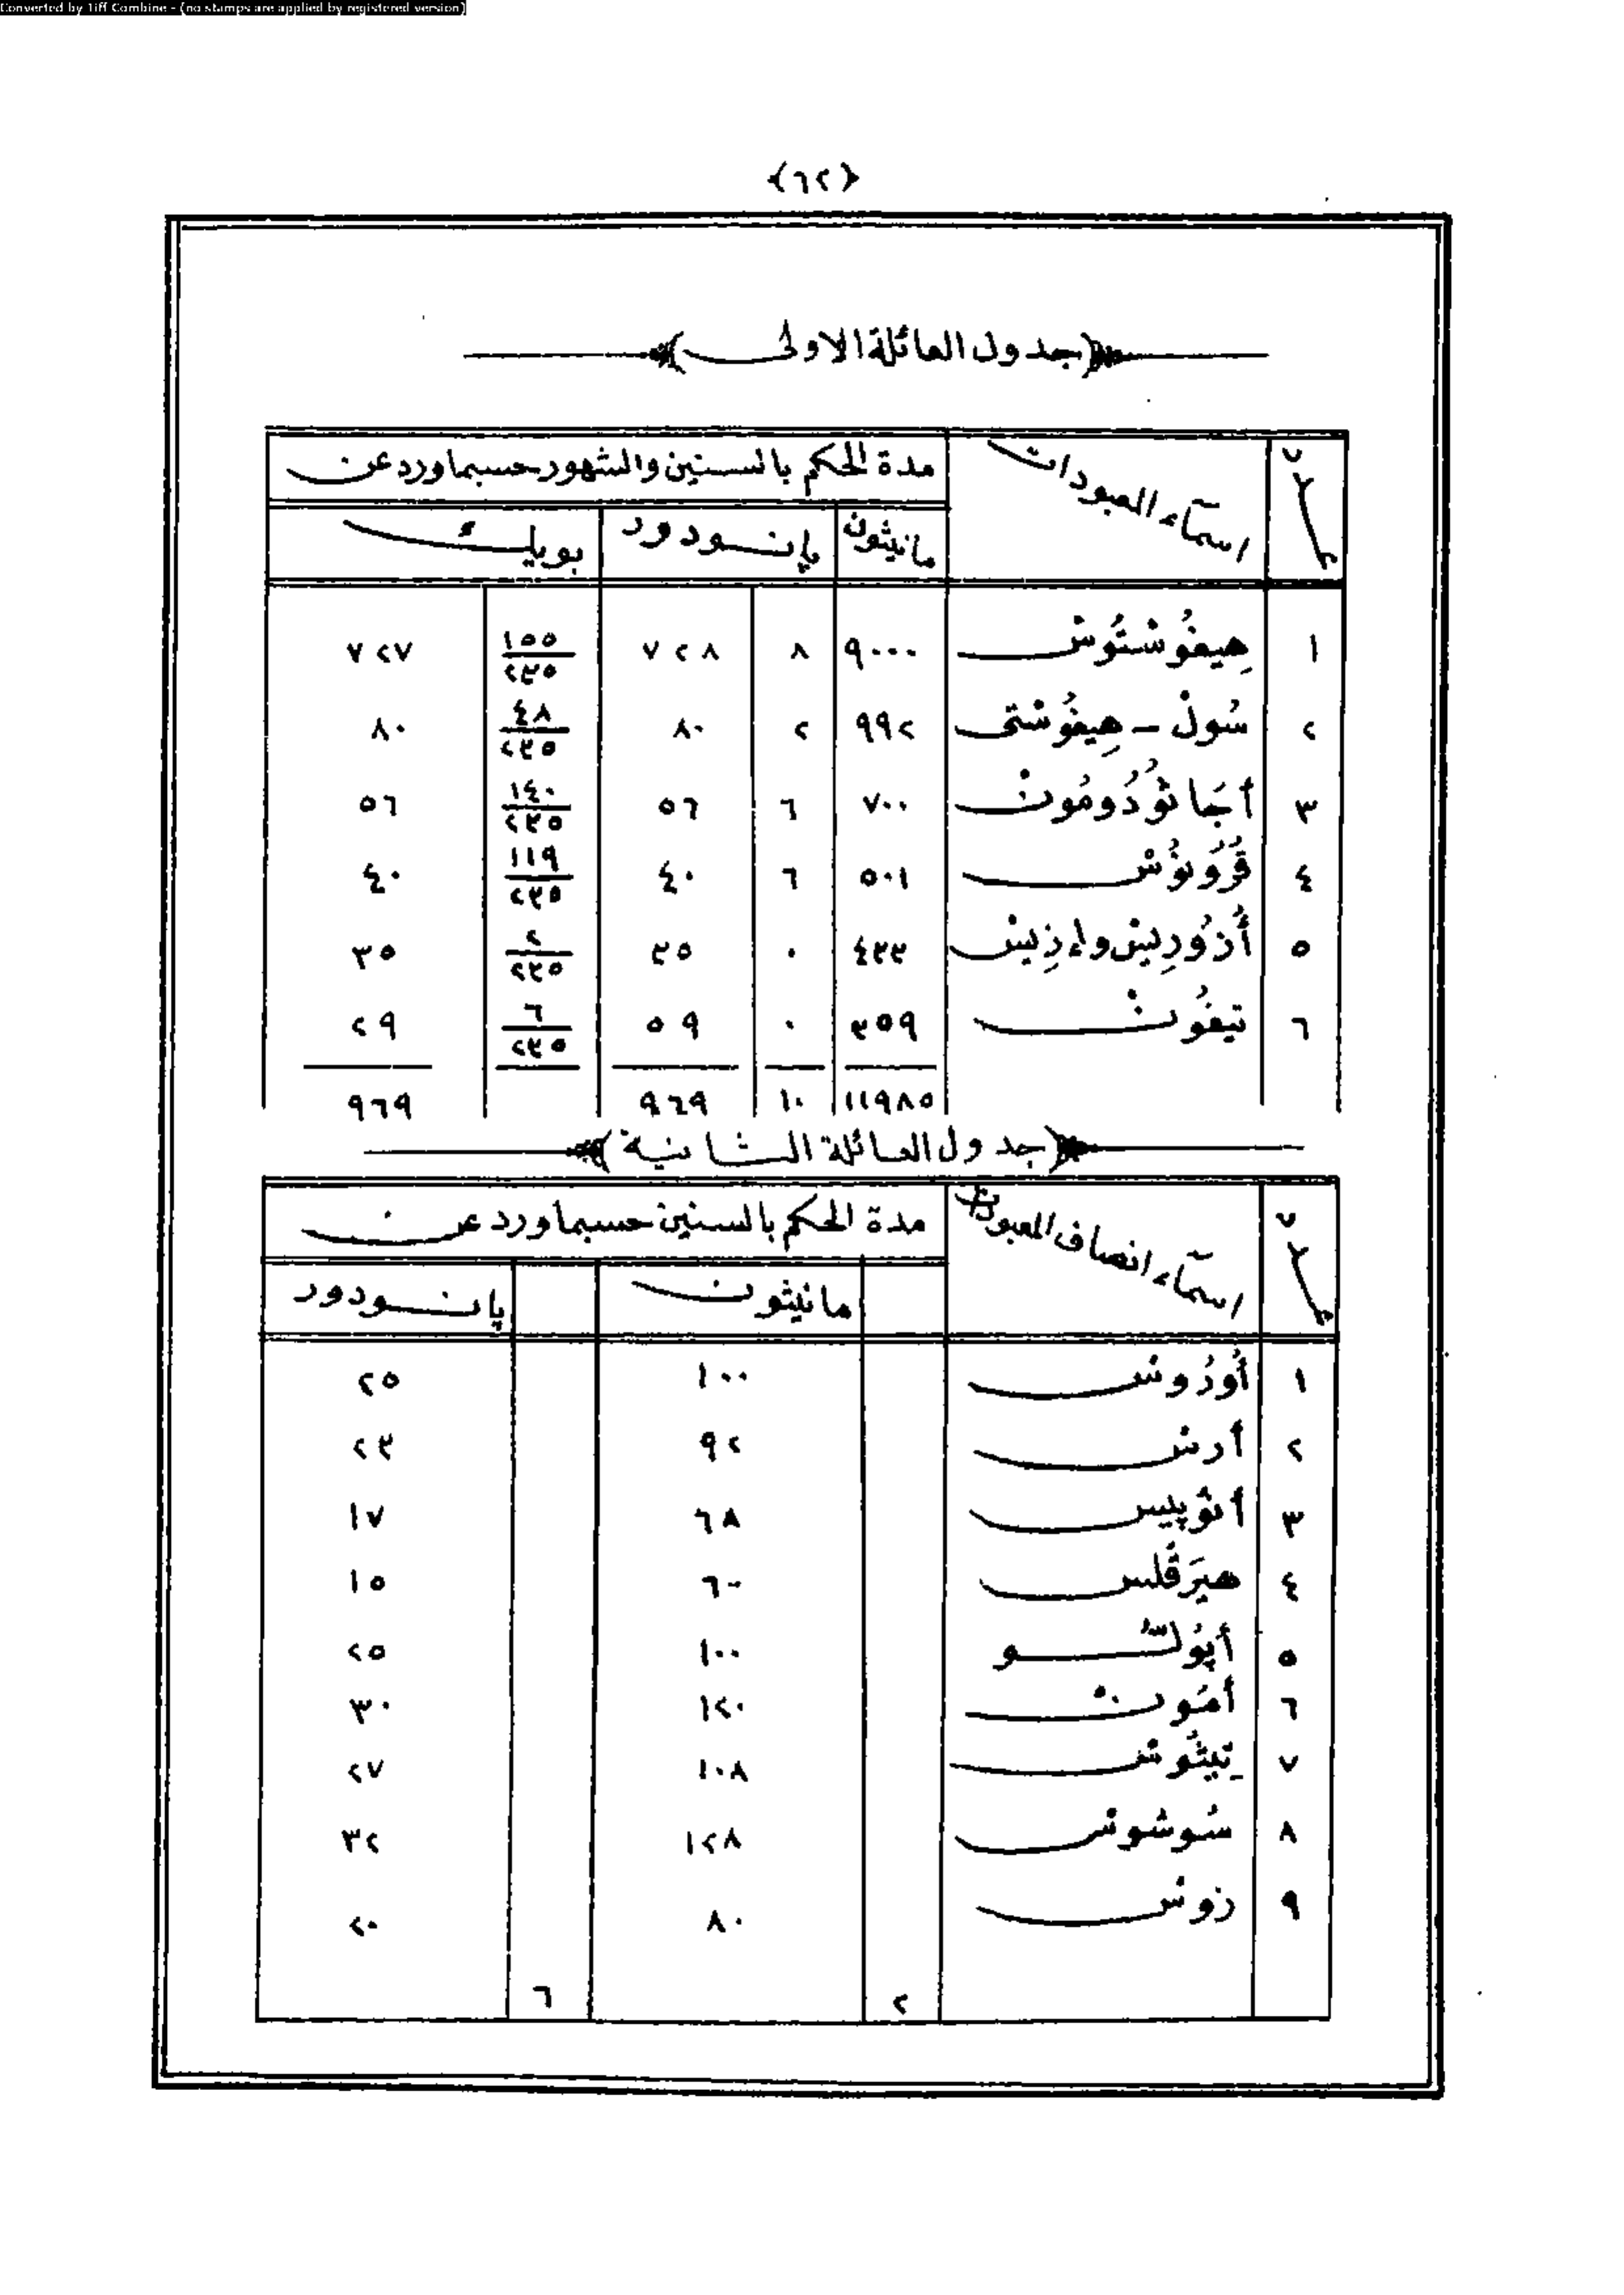 Converted by Tiff Combine - (no stamps are applied by registered version)
(٦٢)
(جدول العائلة الاولى)
اسمآء المعبودات
مدة الحكم بالسنين والشهور حسبما ورد عن
مانيثون پانودور بويك
١ هِيفُوسْتُوسْ ٩٠٠٠ ٨ ٧٢٨ ١٥٥/٢٣٥ ٧٢٧
٢ سُولْ - هِيفُوسْتى ٩٩٢ ٢ ٨٠ ٤٨/٢٣٥ ٨٠
٣ أجَاثُودُومُونْ ٧٠٠ ٦ ٥٦ ١٤٠/٢٣٥ ٥٦
٤ قُرُونُسْ ٥٠١ ٦ ٤٠ ١١٩/٢٣٥ ٤٠
٥ أُزُورِيسْ واِزِيسْ ٤٣٣ ٠ ٣٥ ٢/٢٣٥ ٣٥
٦ تيفُونْ ٣٥٩ ٠ ٥٩ ٦/٢٣٥ ٢٩
١١٩٨٥ ١٠ ٩٦٩ ٩٦٩
(جدول العائلة الثانية)
اسمآء انصاف المعبودات
مدة الحكم بالسنين حسبما ورد عن
مانيثون پانودور
١ أُورُوسْ ١٠٠ ٢٥
٢ أرسْ ٩٢ ٢٣
٣ أنُوپيس ٦٨ ١٧
٤ هيرَقْلس ٦٠ ١٥
٥ أپُولّو ١٠٠ ٢٥
٦ أمُونْ ١٢٠ ٣٠
٧ تِيثُوسْ ١٠٨ ٢٧
٨ سُوسُوسْ ١٢٨ ٣٢
٩ زوسْ ٨٠ ٢٠
٢ ٦